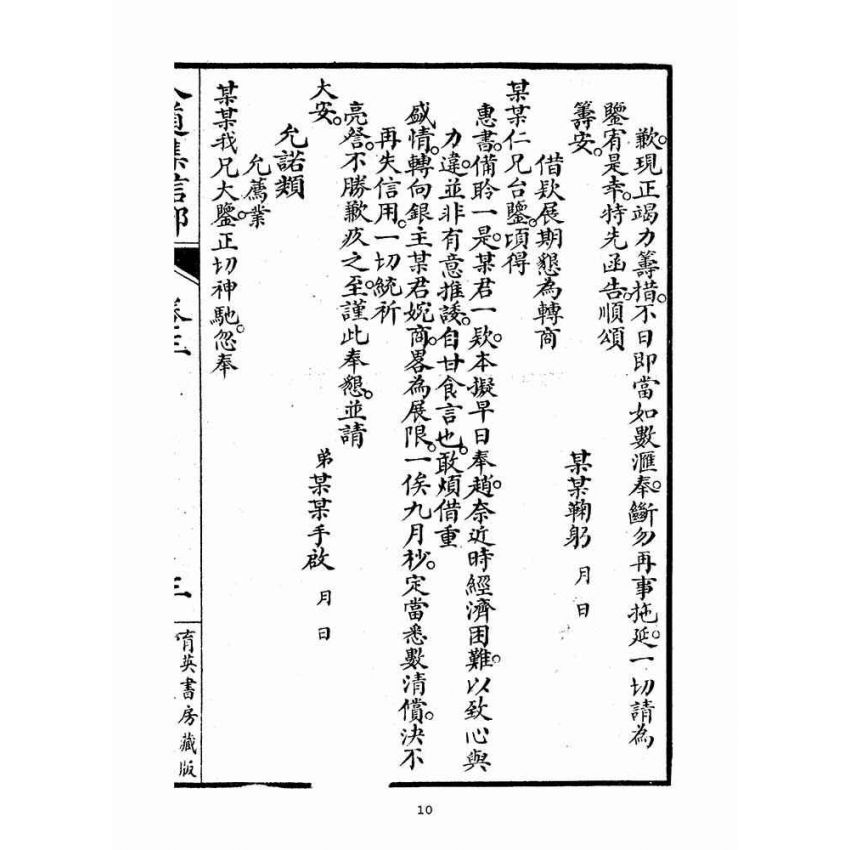 歉。現正竭力籌措。不日即當如數滙奉。斷勿再事拖延。一切請為
鑒宥是幸。特先函告。順頌
籌安。
某某鞠躬 月 日
借欵展期懇為轉商
某某仁兄台鑒。頃得
惠書。備聆一是。某君一欵。本擬早日奉趙。奈近時經濟困難。以致心與
力違。並非有意推諉。自甘食言也。敢煩借重
盛情。轉向銀主某君婉商。畧為展限。一俟九月杪。定當悉數清償。決不
再失信用。一切統祈
亮詧。不勝歉疚之至。謹此奉懇。並請
大安。
弟某某手啟 月 日
允諾類
允薦業
某某我兄大鑒。正切神馳。忽奉
卷三
三
育英書房藏版
10